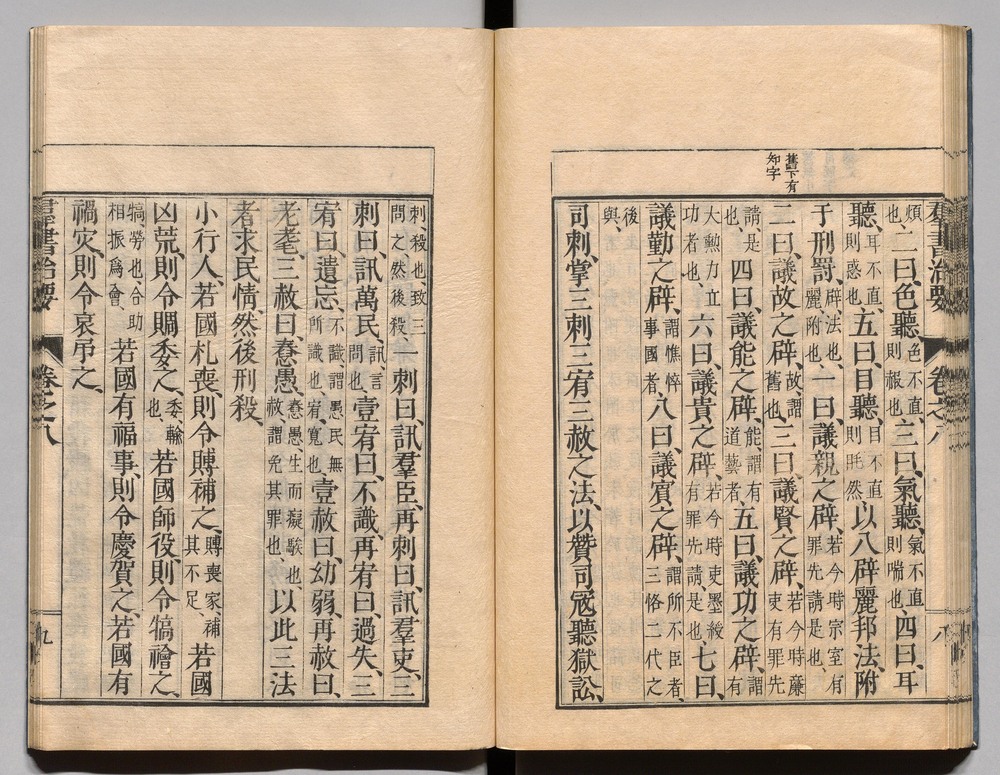 羣書治要 卷之八 八
舊下有
知字
煩、也、二曰、色聽、色不直、則赧也、三曰、氣聽、氣不直則喘也、四曰、耳
聽、耳不直、則惑也、五曰、目聽、目不直則眊然、以八辟麗邦法、附
于刑罰、辟、法也、麗、附也、一曰、議親之辟、若今時宗室有罪先請是也、
二曰、議故之辟、故、謂舊也、三曰、議賢之辟、若今時廉吏有罪先
請、是也、四曰、議能之辟、能、謂有道藝者、五曰、議功之辟、謂有
大勲力立功者也、六曰、議貴之辟、若今時吏墨綬有罪先請是也、七曰、
議勤之辟、謂憔悴事國者、八曰、議賓之辟、謂所不臣者、三恪二代之
後與、
司刺、掌三刺三宥三赦之法、以贊司寇聽獄訟、
刺、殺也、致三問之然後殺、一刺曰、訊羣臣、再刺曰、訊羣吏、三
刺曰、訊萬民、訊、言問也、壹宥曰、不識、再宥曰、過失、三
宥曰、遺忘、不識、謂愚民無所識也、宥、寬也、壹赦曰、幼弱、再赦曰、
老耄、三赦曰、惷愚、惷愚、生而癡騃也、赦、謂免其罪也、以此三法
者求民情、然後刑殺、
小行人、若國札喪、則令賻補之、賻喪家、補其不足、若國
凶荒、則令賙委之、委輸也、若國師役、則令犒禬之、
犒勞也、合助相振爲會、若國有福事、則令慶賀之、若國有
禍灾、則令哀吊之、
羣書治要 卷之八 九